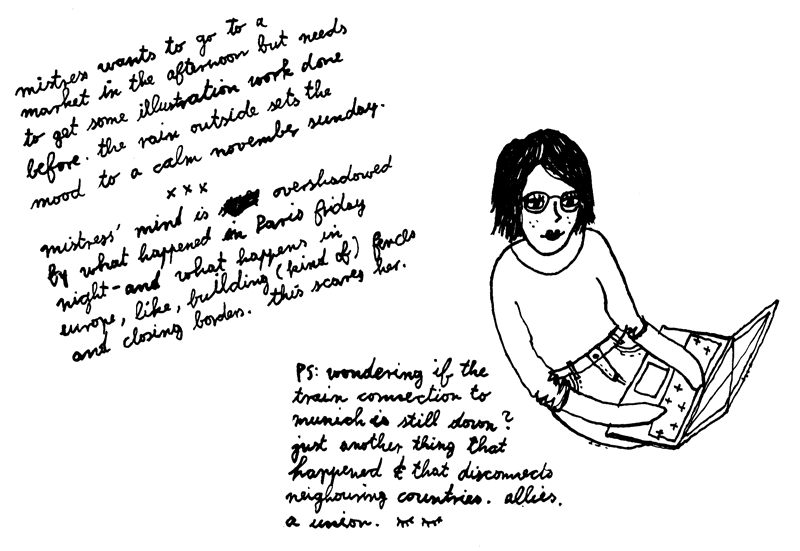 mistress wants to go to a
market in the afternoon but needs
to get some illustration work done
before. the rain outside sets the
mood to a calm november sunday.
x x x
mistress' mind is overshadowed
by what happened in Paris friday
night - and what happens in
europe, like, building (kind of) fences
and closing borders. this scares her.
PS: wondering if the
train connection to
munich is still down?
just another thing that
happened & that disconnects
neighouring countries. allies.
a union.